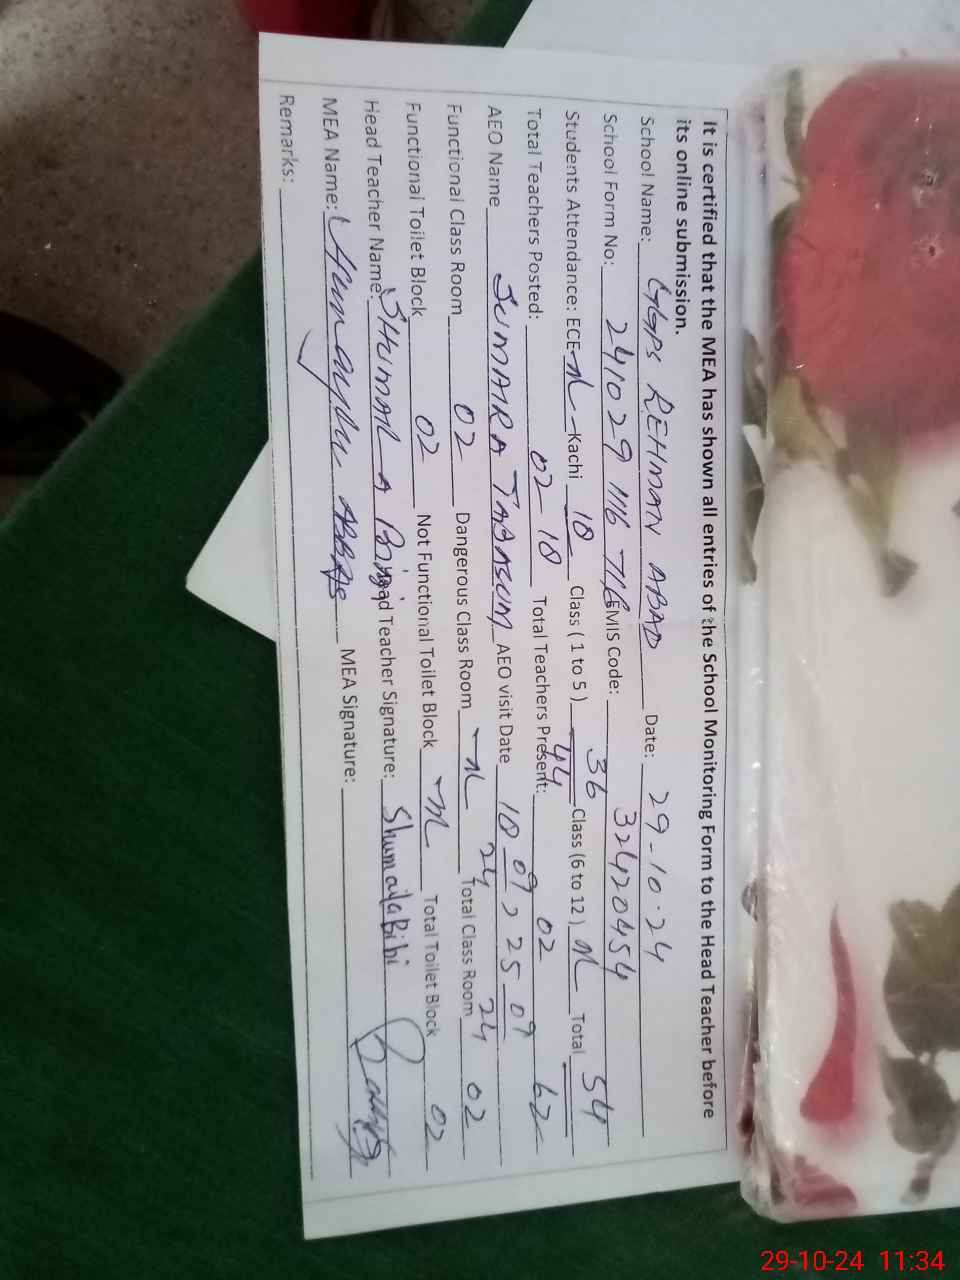 It is certified that the MEA has shown all entries of the School Monitoring Form to the Head Teacher before
its online submission.
School Name: GGPS REHMAN ABAD Date: 29-10-24
School Form No: 241029 1116 716 EMIS Code: 32420454
Students Attendance: ECE N Kachi 10 Class ( 1 to 5 ) 36 Class (6 to 12 ) N Total 54
44
Total Teachers Posted: 02 - 10 Total Teachers Present: 02 62
AEO Name SUMAIRA TABASUM AEO visit Date 10-09-24, 25-09-24
Functional Class Room 02 Dangerous Class Room N Total Class Room 02
Functional Toilet Block 02 Not Functional Toilet Block N Total Toilet Block 02
Head Teacher Name: SHUMAILA Head Teacher Signature: Shumaila Bibi
MEA Name: Humayun ABBAS MEA Signature:
Remarks:
29-10-24 11:34